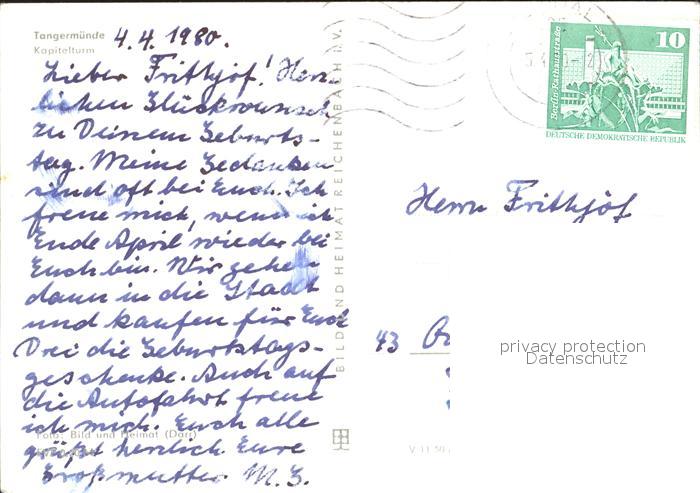 Tangermünde
Kapitelturm
4.4.1980.
Lieber Frithjof! Herz-
lichen Glückwunsch
zu Deinem Geburts-
tag. Meine Gedanken
sind oft bei Euch. Ich
freue mich, wenn ich
Ende April wieder bei
Euch bin. Wir gehen
dann in die Stadt
und kaufen für Euch
Drei die Geburtstags-
geschenke. Auch auf
die Autofahrt freue
ich mich. Euch alle
grüßt herzlich Eure
Großmutter M. G.
Foto: Bild und Heimat (Darr)
BILD UND HEIMAT REICHENBACH I. V.
V 11 50
Berlin-Rathausstraße
10
DEUTSCHE DEMOKRATISCHE REPUBLIK
Herrn Frithjof
43
privacy protection
Datenschutz